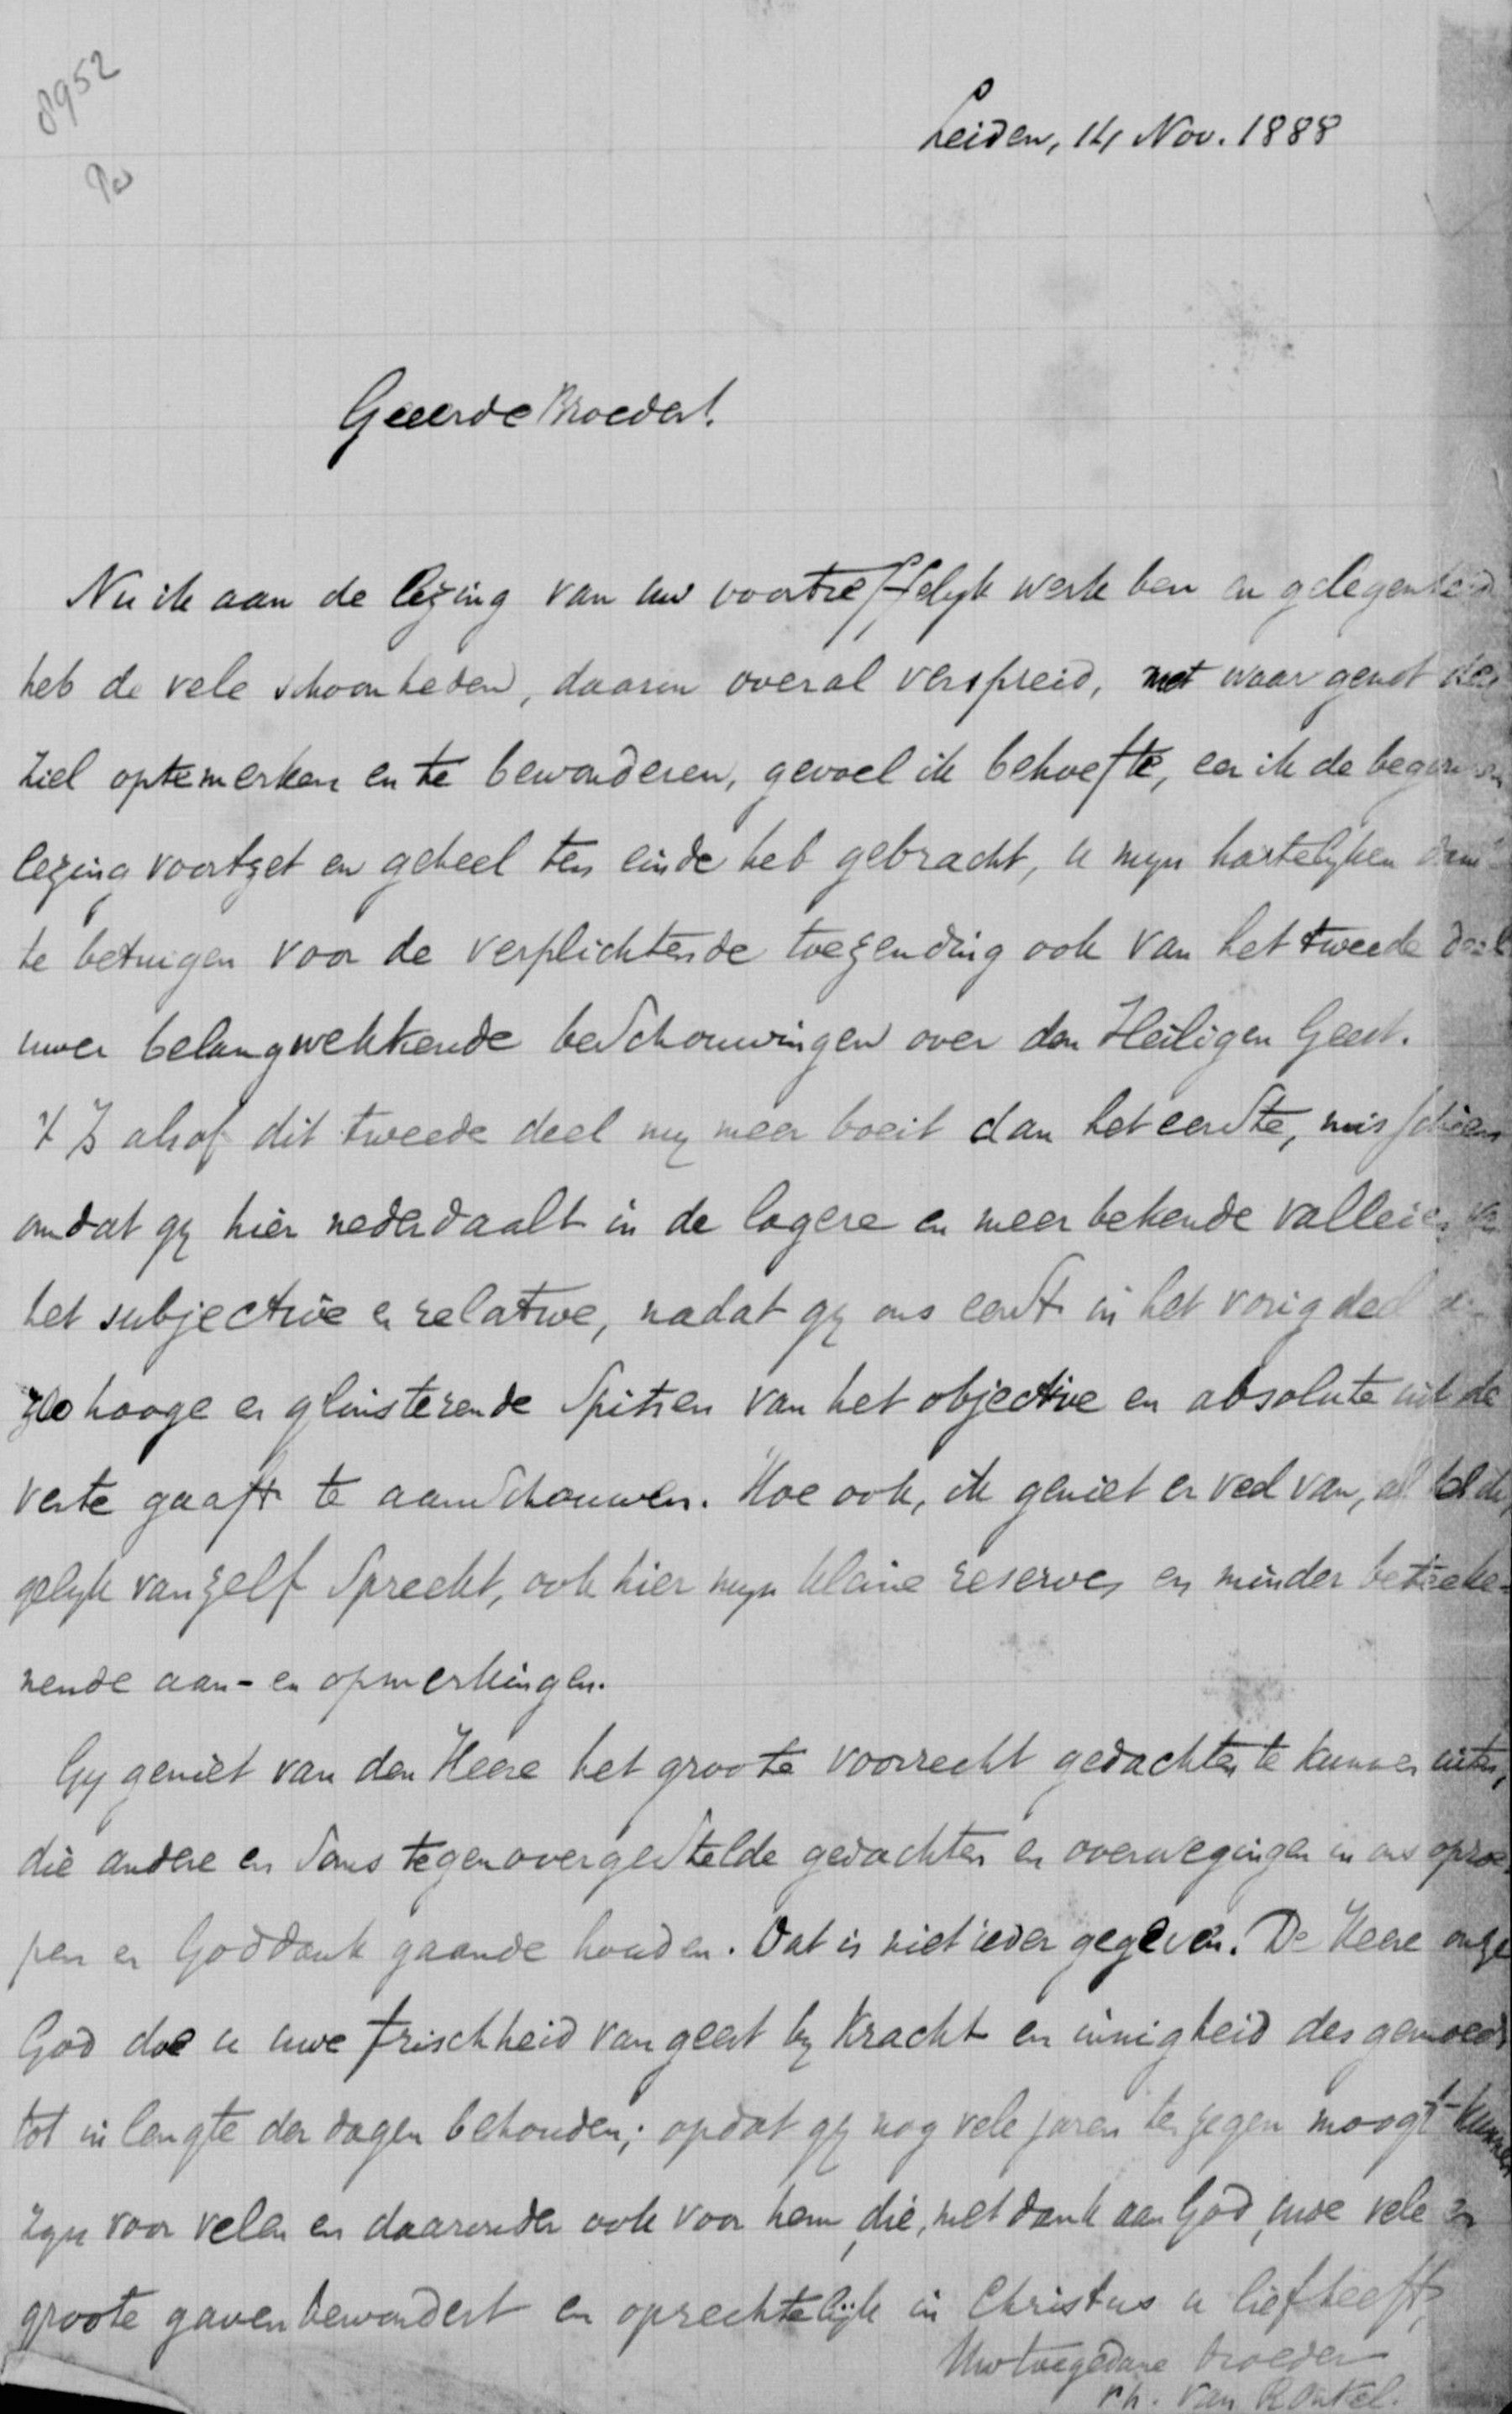 8952
Leiden, 14 Nov. 1888
Geeerde Broeder!
Nu ik aan de lezing van uw voortreffelijk werk ben en gelegenheid
heb de vele schoonheden, daarin overal verspreid, met waar genot der
ziel optemerken en te bewonderen, gevoel ik behoefte, eer ik de begonnen
lezing voortzet en geheel ten einde heb gebracht, u mijn hartelijken dank
te betuigen voor de verplichtende toezending ook van het tweede deel
uwer belangwekkende beschouwingen over den Heiligen Geest.
't Is alsof dit tweede deel mij meer boeit dan het eerste, misschien
omdat gij hier nederdaalt in de lagere en meer bekende valleien van
het subjective en relative, nadat gij ons eerst in het vorig deel de
zoo hooge en glinsterende spitsen van het objective en absolute uit de
verte gaaft te aanschouwen. Hoe ook, ik geniet er veel van, al heb ik,
gelijk van zelf spreekt, ook hier mijn kleine reserves en minder beteeke-
nende aan- en opmerkingen.
Gij geniet van den Heere het groote voorrecht gedachten te kunnen uiten,
die andere en soms tegenovergestelde gedachten en overwegingen in ons oproe-
pen en Goddank gaande houden. Dat is niet ieder gegeven. De Heere onze
God doe u uwe frischheid van geest bij kracht en innigheid des gemoeds
tot in lengte der dagen behouden; opdat gij nog vele jaren ten zegen moogt kunnen
zijn voor velen en daaronder ook voor hem, die, met dank aan God, uwe vele en
groote gaven bewondert en oprechtelijk in Christus u liefheeft,
Uw toegedane broeder
Ph. van Ronkel.